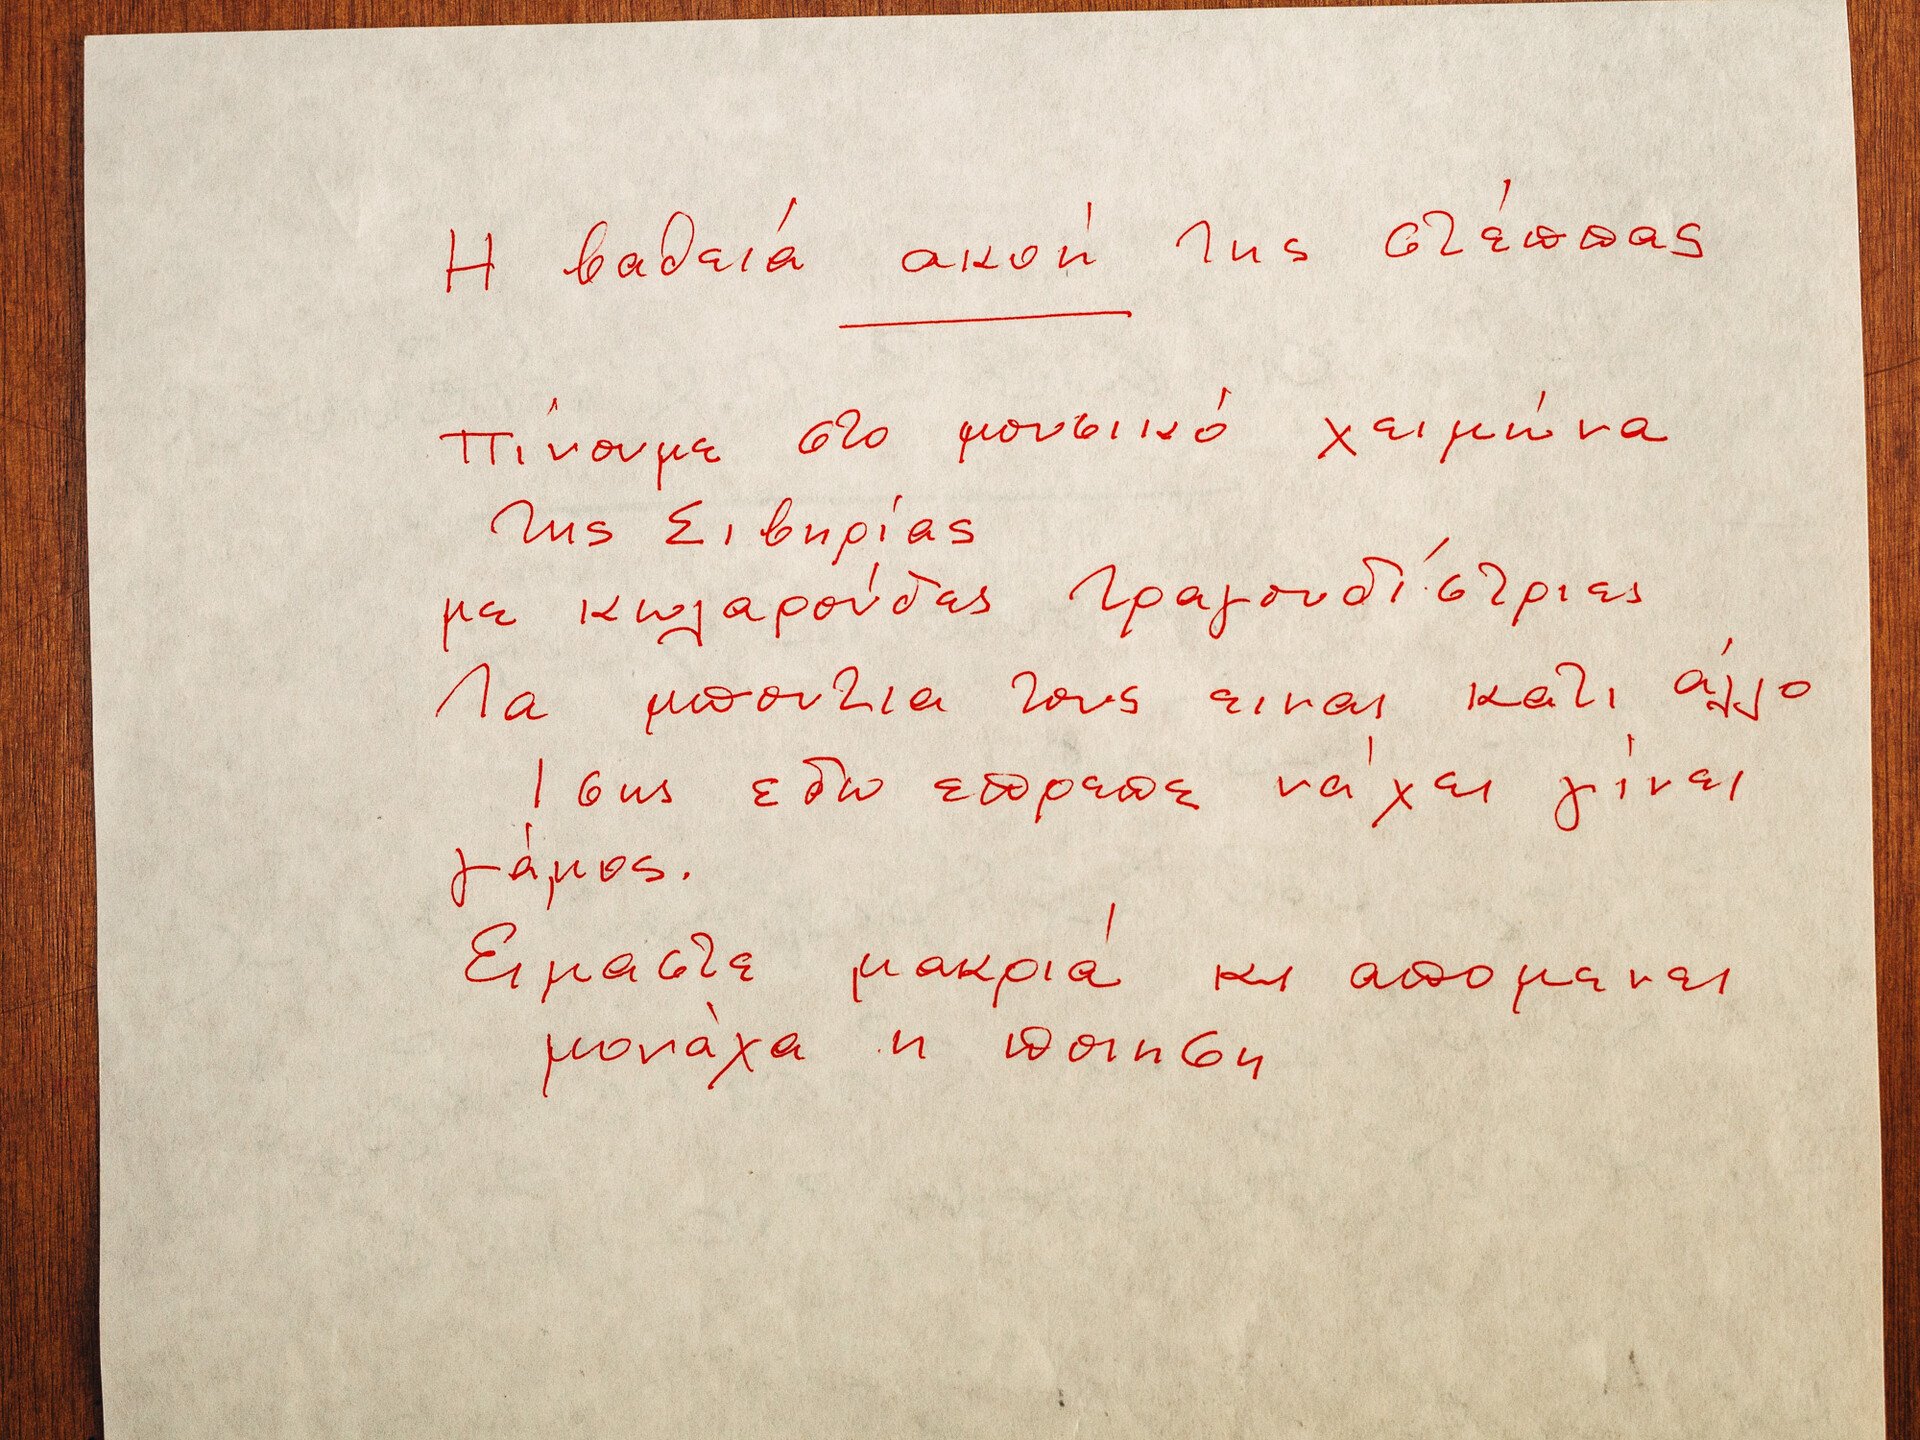 Η βαθειά ακοή της στέππας
Πίνουμε στο μουσικό χειμώνα
της Σιβηρίας
με κωλαρούδες τραγουδίστριες
Τα μπουτια τους ειναι κατι άλλο
Ισης εδω επρεπε νάχει γίνει
γάμος.
Ειμαστε μακριά κι απομενει
μονάχα η ποιηση